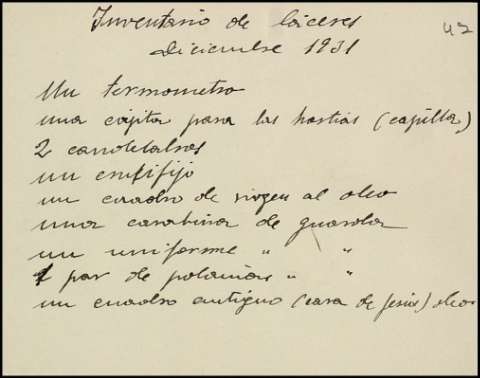 Inventario de Cáceres
Diciembre 1931
42
Un termometro
una cajita para las hostias (capilla)
2 candelabros
un crufifijo
un cuadro de virgen al oleo
una carabina de guarda
un uniforme " "
1 par de polainas " "
un cuadro antiguo (cara de Jesús) oleo